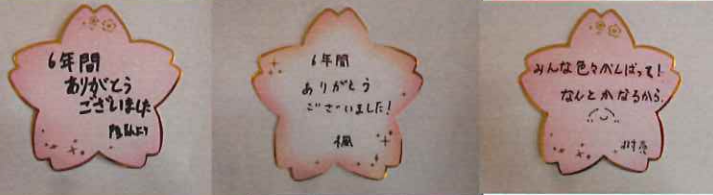 6年間
ありがとう
ございました
6年間
ありがとう
ございました!
楓
みんな色々がんばって!
なんとかなるから。